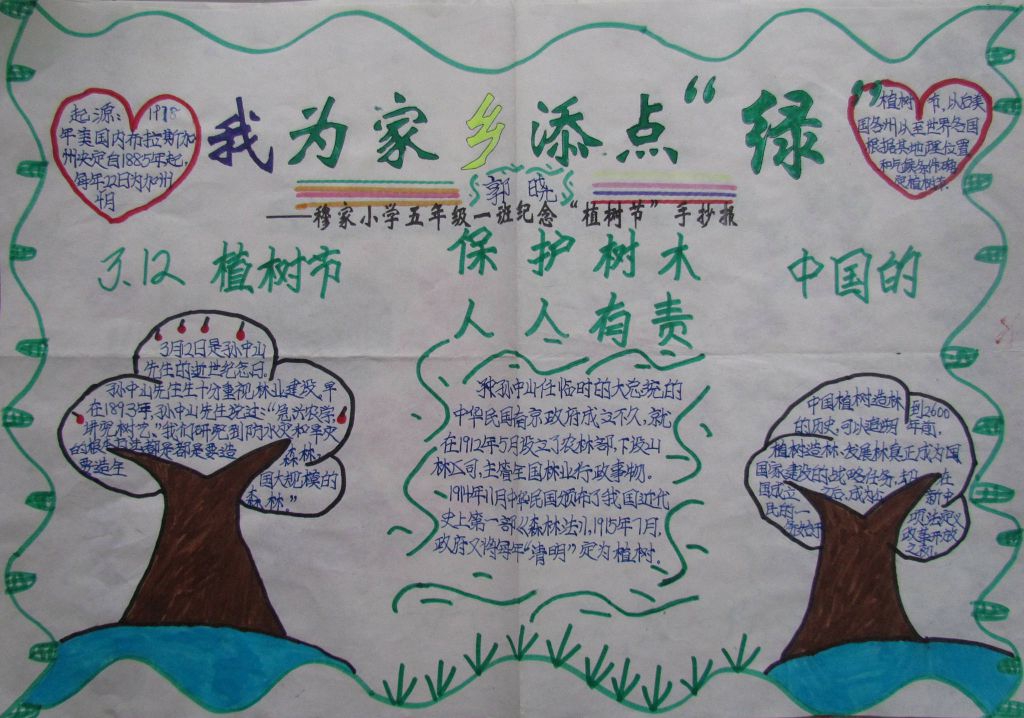 我为家乡添点“绿”
郭晓
——穆家小学五年级一班纪念“植树节”手抄报
起源：1918
年美国内布拉斯加
州决定自1885年起，
每年22日为加州
植树节，以台美
国各州以至世界各国
根据其地理位置
和气候条件确
定植树节.
3.12 植树节
保护树木
人人有责
中国的
3月2日是孙中山
先生的逝世纪念日.
孙中山先生生十分重视林业建设,早
在1893年,孙中山先生说过:“急兴农学,
讲究树艺.”我们研究到防水灾和旱灾
的根本方法都是都是要造
森林,
要造全
国大规模的
森林.”
孙中山任临时的大总统的
中华民国南京政府成立不久.就
在1912年5月设立了农林部,下设山
林公司.主管全国林业行政事物.
1914年11月中华民国颁布了我国近代
史上第一部《森林法》,1915年7月,
政府又将每年“清明”定为植树.
中国植树造林
的历史,可以追朔
到2600
年前.
植树造林.发展林真正成为国
国家建设的战略任务,
在
国成立
后,成为
新中
民的一
项法定义
政革开放
之初